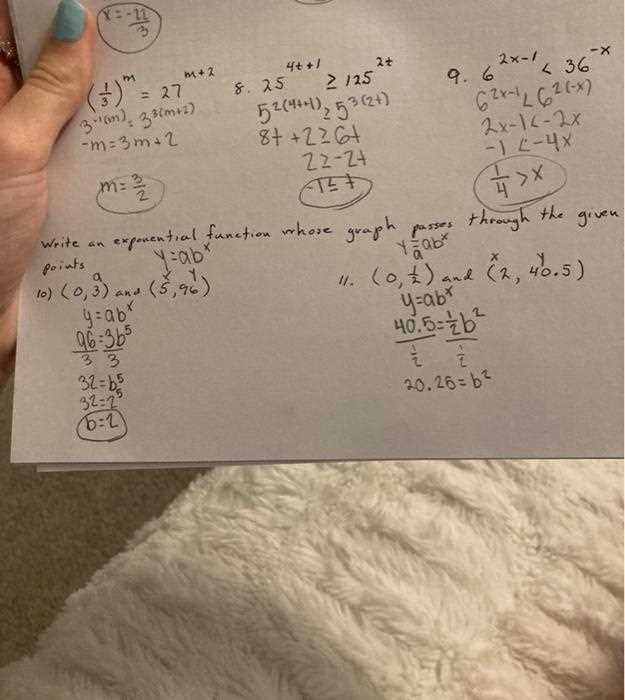 x = -22/3
(1/3)^m = 27^(m+2)
3^(-1(m)) = 3^(3(m+2))
-m = 3m + 2
m = 3/2
8. 25^(4t+1) ≥ 125^(2t)
5^(2(4t+1)) ≥ 5^(3(2t))
8t + 2 ≥ 6t
2 ≥ -2t
-1 ≤ t
9. 6^(2x-1) < 36^(-x)
6^(2x-1) < 6^(2(-x))
2x-1 < -2x
-1 < -4x
1/4 > x
Write an exponential function whose graph passes through the given
points
y = ab^x
a x y
10) (0, 3) and (5, 96)
y = ab^x
96 = 3b^5
3 3
32 = b^5
32 = 2^5
b = 2
y = ab^x
a x y
11. (0, 1/2) and (2, 40.5)
y = ab^x
40.5 = 1/2 b^2
1/2 1/2
20.25 = b^2